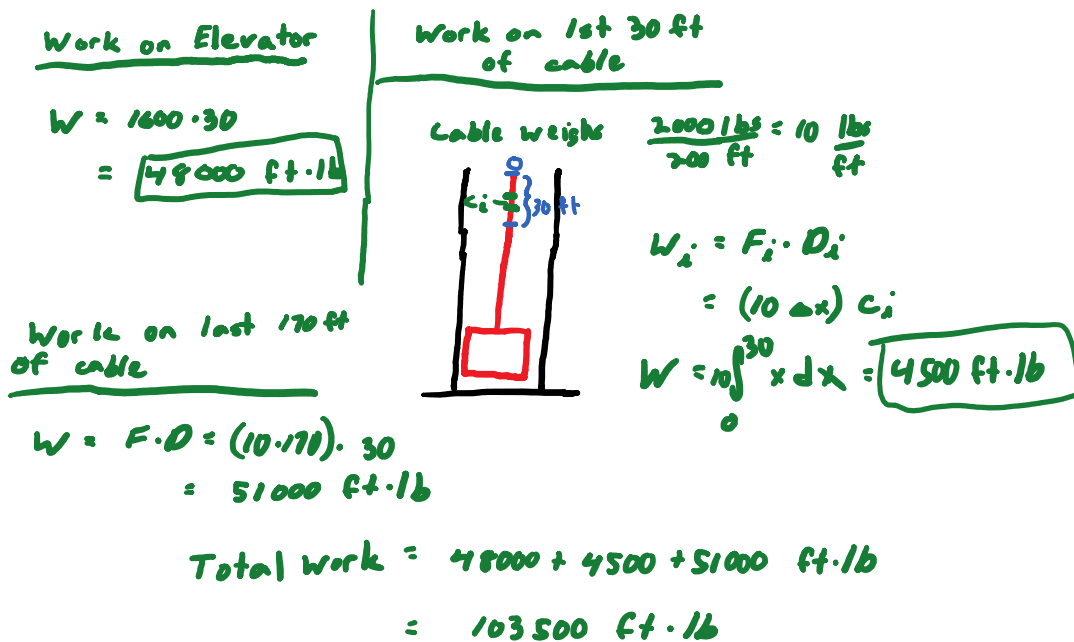 Work on Elevator
W = 1600·30
= 48000 ft·lb
Work on 1st 30 ft
of cable
Cable weighs 2000 lbs / 200 ft = 10 lbs / ft
0
c_i
30 ft
W_i = F_i · D_i
= (10 Δx) c_i
W = 10 ∫_0^30 x dx = 4500 ft·lb
Work on last 170 ft
of cable
W = F·D = (10·170)· 30
= 51000 ft·lb
Total work = 48000 + 4500 + 51000 ft·lb
= 103500 ft·lb